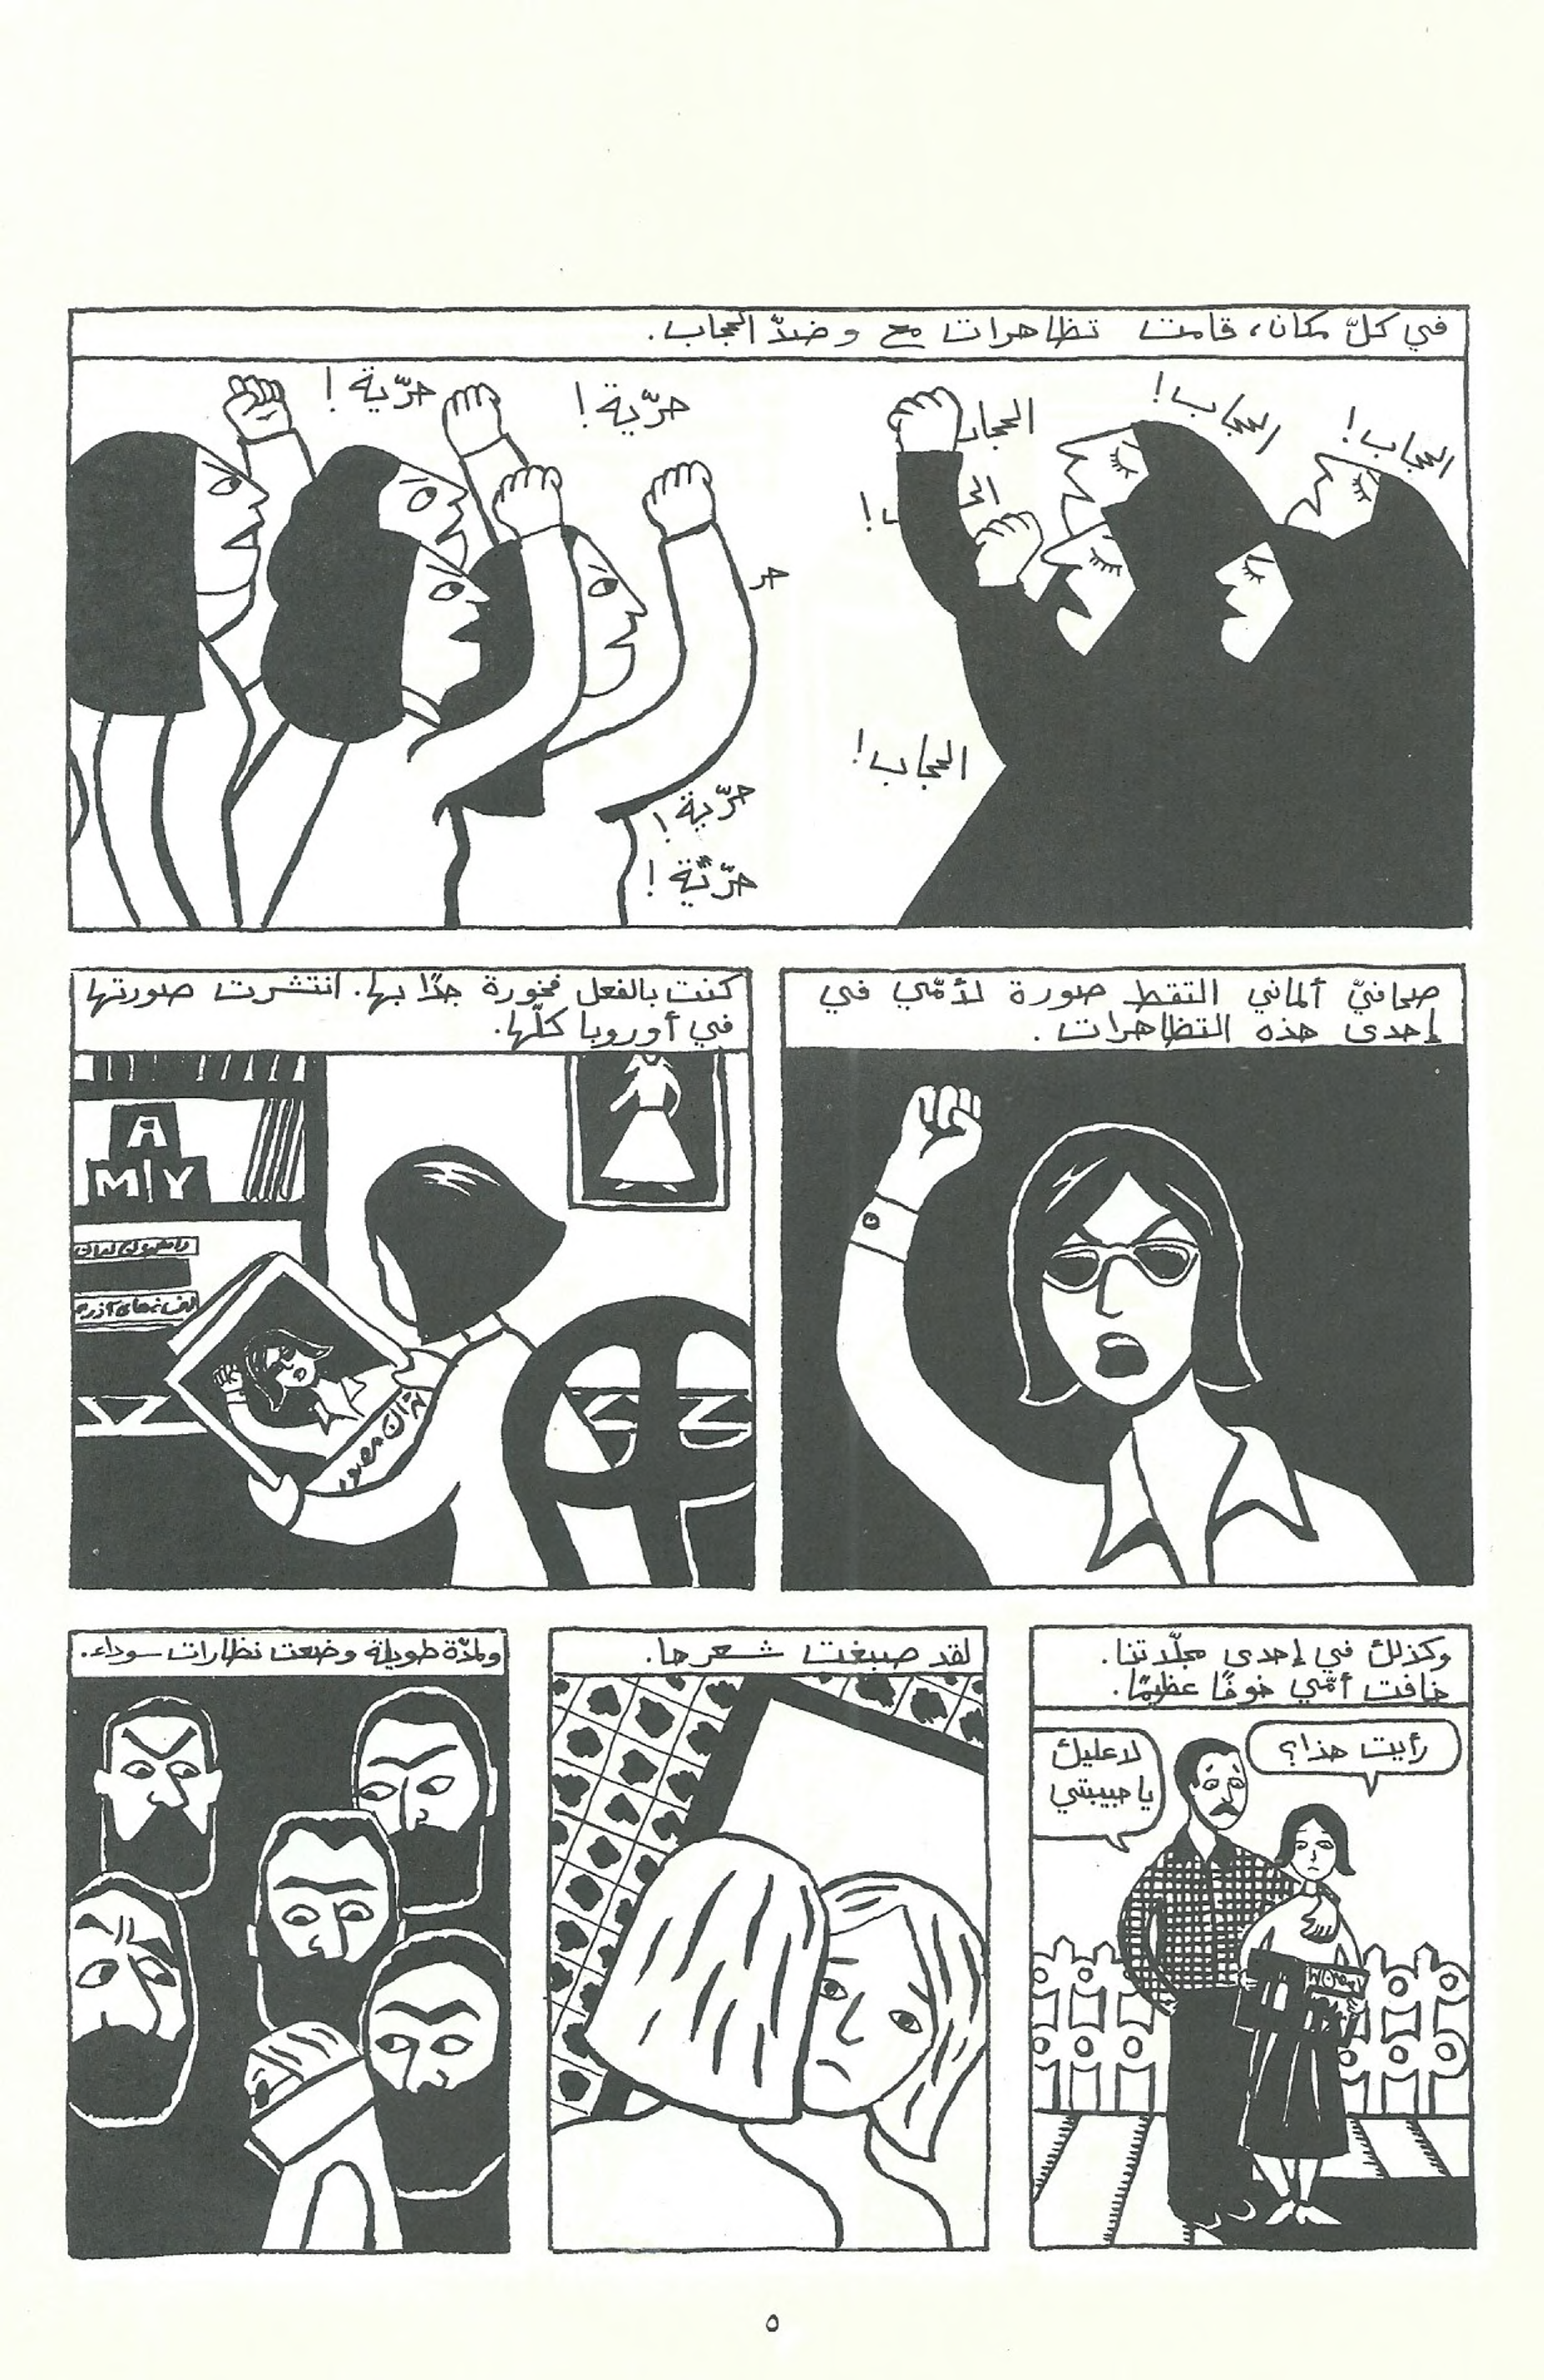 في كلّ مكان، قامت تظاهرات مع وضدّ الحجاب.
الحجاب!
الحجاب!
الحجاب
الحجاب!
حرّية!
حرّية!
حر
حرّية!
حرّية!
صحافيّ ألماني التقط صورة لأمّي في
إحدى هذه التظاهرات.
كنت بالفعل فخورة جدًا بها. انتشرت صورتها
في أوروبا كلّها.
A
M Y
وكذلك في إحدى مجلّاتنا.
خافت أمّي خوفًا عظيمًا.
رأيت هذا؟
لا عليك
يا حبيبتي
لقد صبغت شعرها.
ولمدّة طويلة وضعت نظارات سوداء.
٥